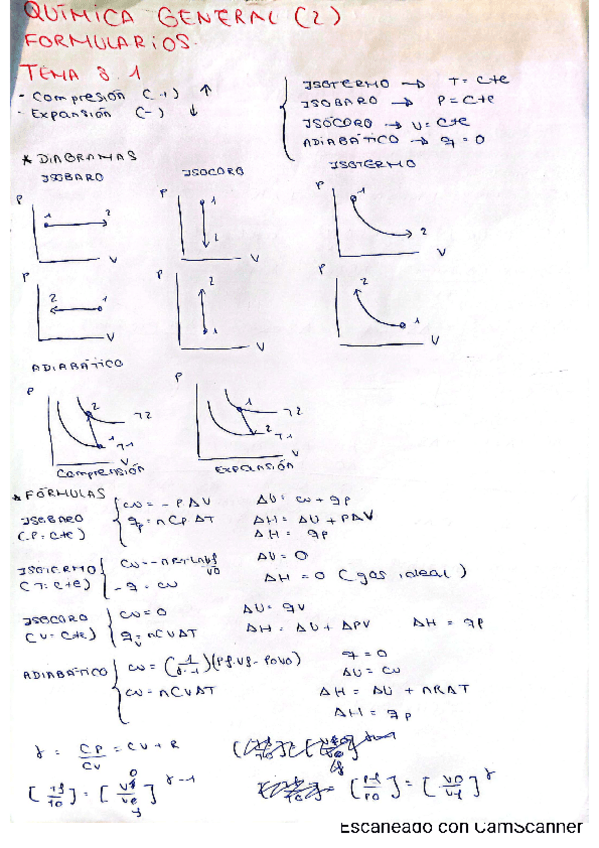 QUÍMICA GENERAL (2)
FORMULARIOS.
TEMA 8.1
· Compresión (+) ↑
· Expansión (-) ↓
ISOTERMO → T = cte
ISOBARO → P = cte
ISÓCORO → V = cte
ADIABÁTICO → q = 0
* DIAGRAMAS
ISOBARO
ISOCORO
ISOTERMO
P 1 2 V
P 1 2 V
P 1 2 V
P 2 1 V
P 2 1 V
P 2 1 V
ADIABÁTICO
P 2 1 T2 T1 V
Compresión
P 1 2 T2 T1 V
Expansión
* FÓRMULAS
ISOBARO (P = cte)
w = - P ΔV
q = n Cp ΔT
ΔU = w + qp
ΔH = ΔU + PΔV
ΔH = qp
ISOTERMO (T = cte)
w = -nRT Ln Vf/V0
-q = w
ΔU = 0
ΔH = 0 (gas ideal)
ISOCORO (V = cte)
w = 0
qv = nCvΔT
ΔU = qv
ΔH = ΔU + ΔPV
ΔH = qp
ADIABÁTICO
w = (1/γ-1)(Pf·Vf - P0V0)
w = nCvΔT
q = 0
ΔU = w
ΔH = ΔU + nRΔT
ΔH = qp
γ = Cp/Cv = Cv + R
[Tf/T0] = [V0/Vf]^γ-1
[Pf/P0] = [V0/Vf]^γ
Escaneado con CamScanner